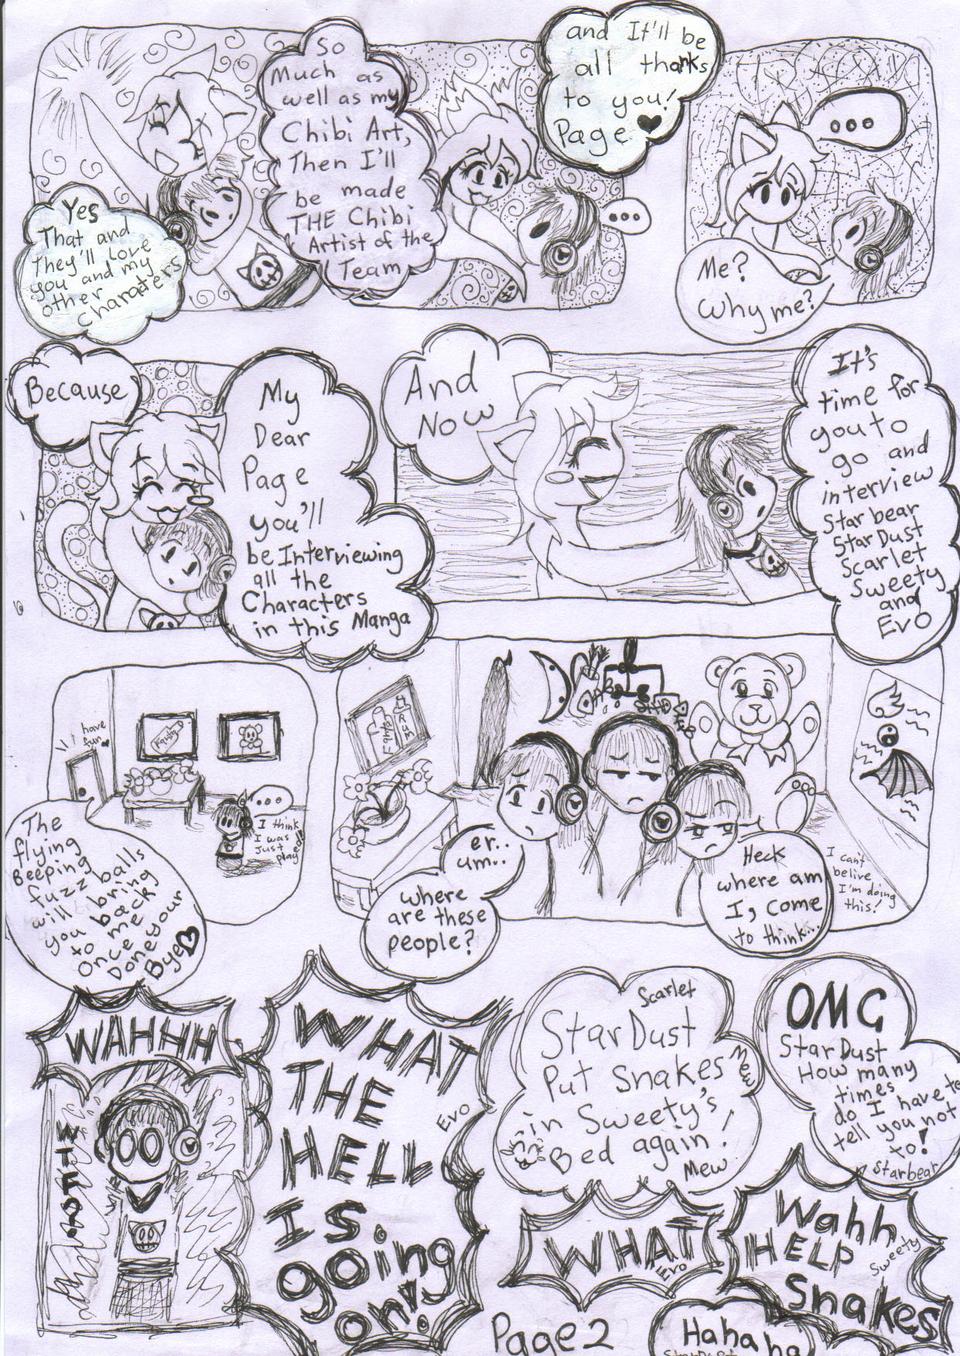 Yes
That and
They'll Love
you and my
other
Characters
So
Much as
well as my
Chibi Art,
Then I'll
be made
THE Chibi
Artist of the
Team
and It'll be
all thanks
to you!
Page ♥
...
...
Me?
Why me?
Because
My
Dear
Page
you'll
be Interviewing
all the
Characters
in this Manga
And
Now
It's
time for
you to
go and
interview
Starbear
StarDust
Scarlet
Sweety
and
Evo
I have
fun
The
flying
Beeping
fuzz balls
will bring
you back
to me
Once
Done your
Bye♥
...
I think
I was
Just
played
er..
um..
where
are these
people?
Heck
where am
I, come
to think..
I can't
belive
I'm doing
this!
WAHHH
WHAT
THE
HELL
IS
going
on!
Evo
Scarlet
StarDust
Put snakes
in Sweety's
Bed again!
Mew
Mew
OMG
StarDust
How many
times
do I have to
tell you not
to!
Starbear
WHAT
Evo
Wahh
HELP
Sweety
Snakes
Page 2
Hahaha
StarDust